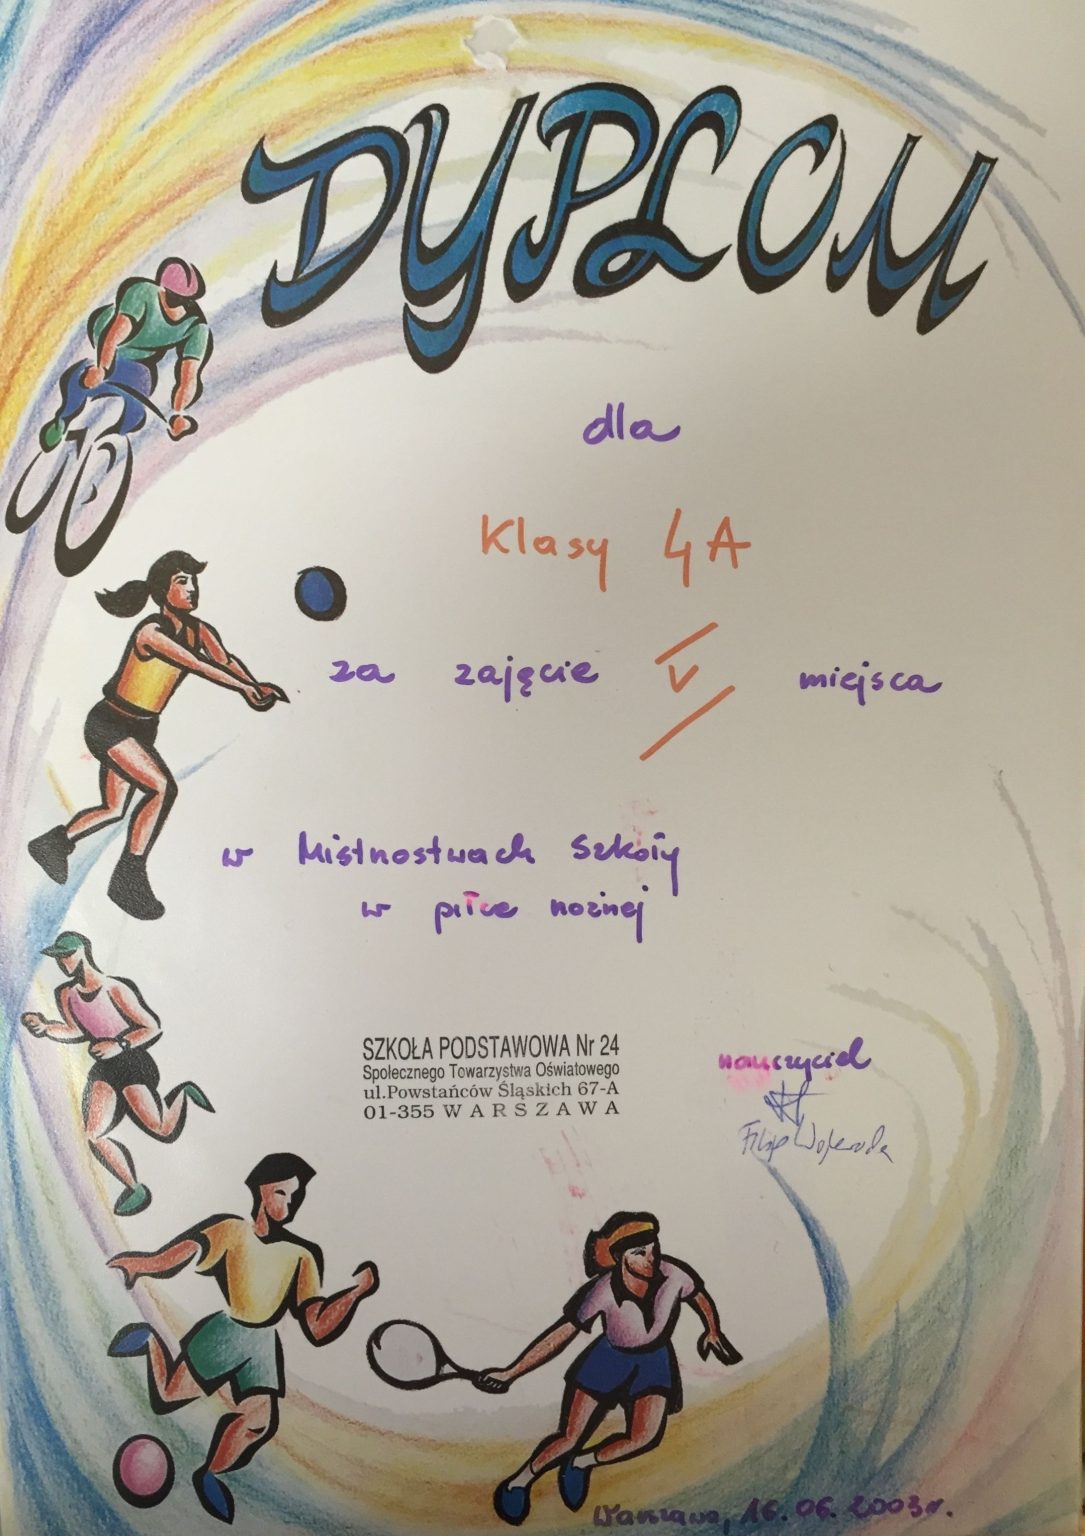 DYPLOM
dla
Klasy 4A
za zajęcie V miejsca
w Mistnostwach Szkoły
w piłce nożnej
SZKOŁA PODSTAWOWA Nr 24
Społecznego Towarzystwa Oświatowego
ul.Powstańców Śląskich 67-A
01-355 WARSZAWA
nauczyciel
Filip
Warszawa, 16.06.2003r.